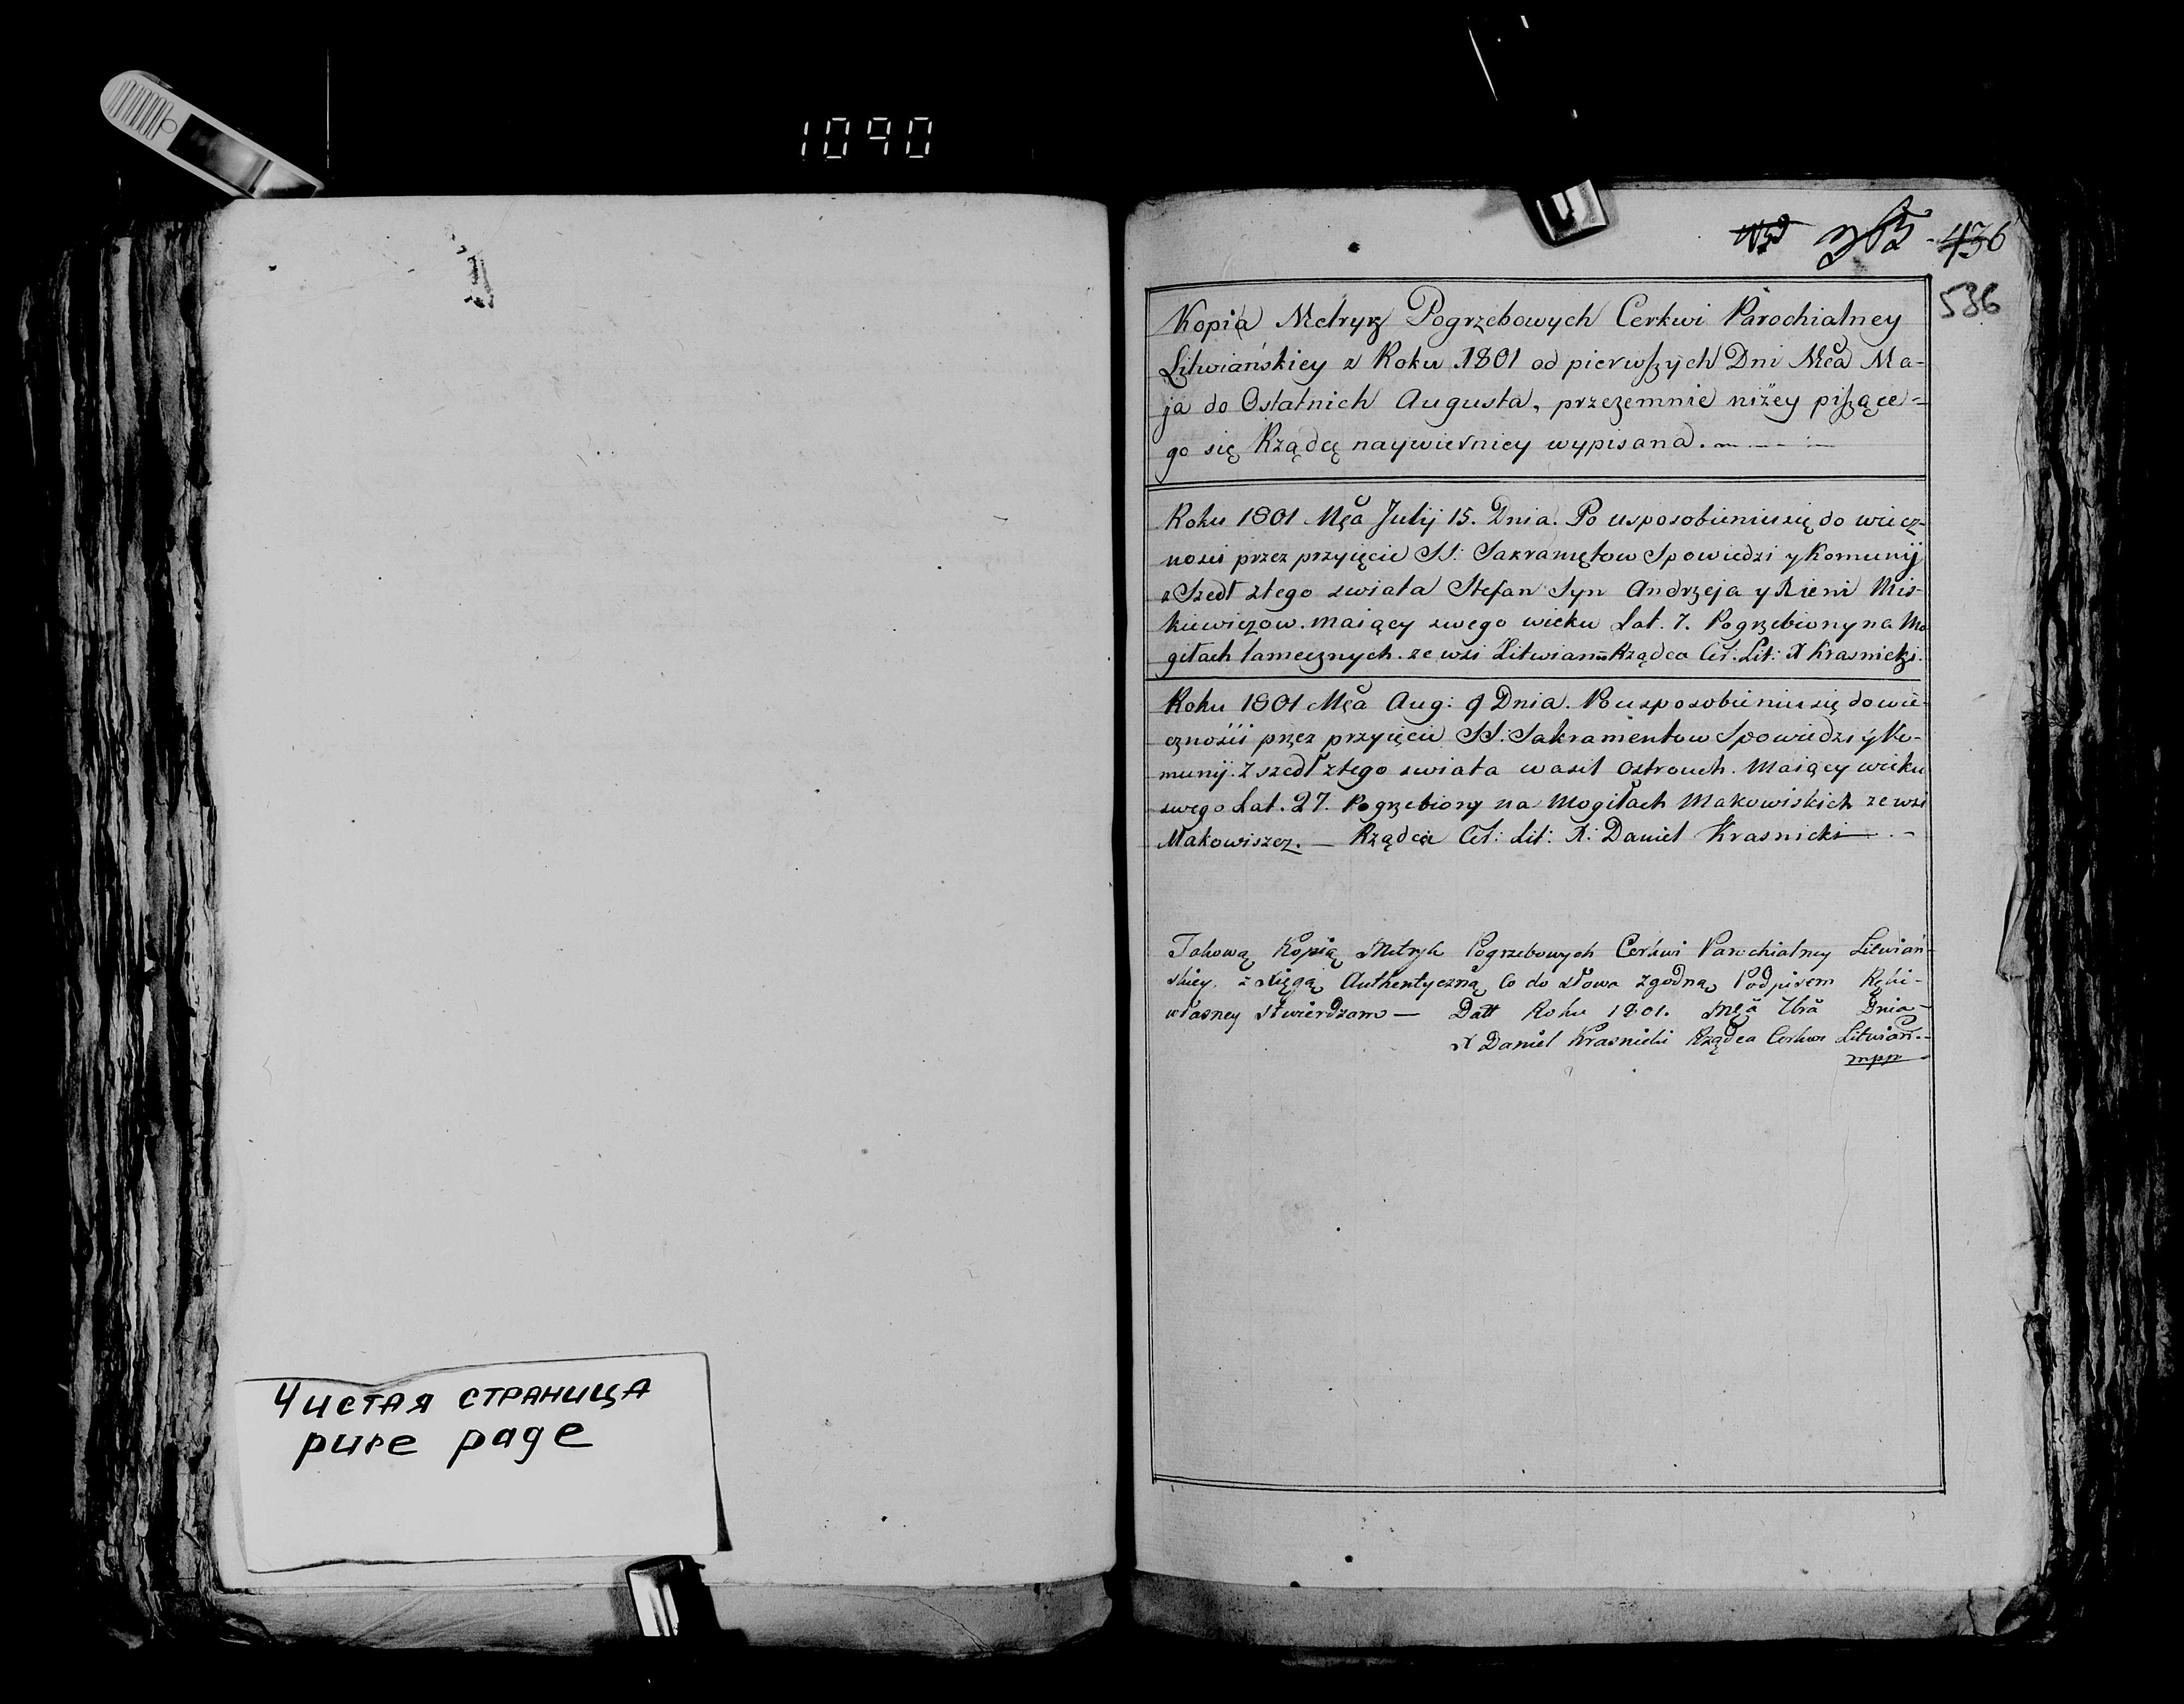 1090
436
536
Kopia Metryk Pogrzebowych Cerkwi Parochialney
Litwiańskiey z Roku 1801 od pierwszych Dni Mca Ma-
ja do Ostatnich Augusta, przezemnie niżey piszące-
go się Rządcę naywierniey wypisana.
Roku 1801 Mca Julij 15. Dnia. Po usposobieniu się do wiecz-
nosci przez przyięcie SS: Sakramętow Spowiedzi y Komunij
zSzedł ztego swiata Stefan Syn Andrzeja y Xieni Mis-
kiewiczow. maiący swego wieku Lat. 7. Pogrzebiony na Mo
giłach tamecznych. ze wsi Litwian Rządca Cer. Lit: X Krasnicki.
Roku 1801 Mca Aug: 9 Dnia. Po usposobieniu się do wie-
cznośći przez przyięcie SS: Sakramentow Spowiedzi y Ko-
munij. Zszedł ztego swiata wasil Ostrouch. Maiący wieku
swego Lat. 27. Pogrzebiony na Mogiłach Makowiskich ze wsi
Makowiszcz. — Rządca Cer: Lit: X: Daniel Krasnicki
Takową Kopią Metryk Pogrzebowych Cerkwi Parochialney Litwiań-
skiey. z Xięgą Authentyczną Co do słowa zgodną Podpisem Ręki-
własney stwierdzam — Datt Roku 1801. Mca 7bra Dnia-
X Daniel Krasnicki Rządca Cerkwi Litwiań.-
mpp
Чистая страница
pure page